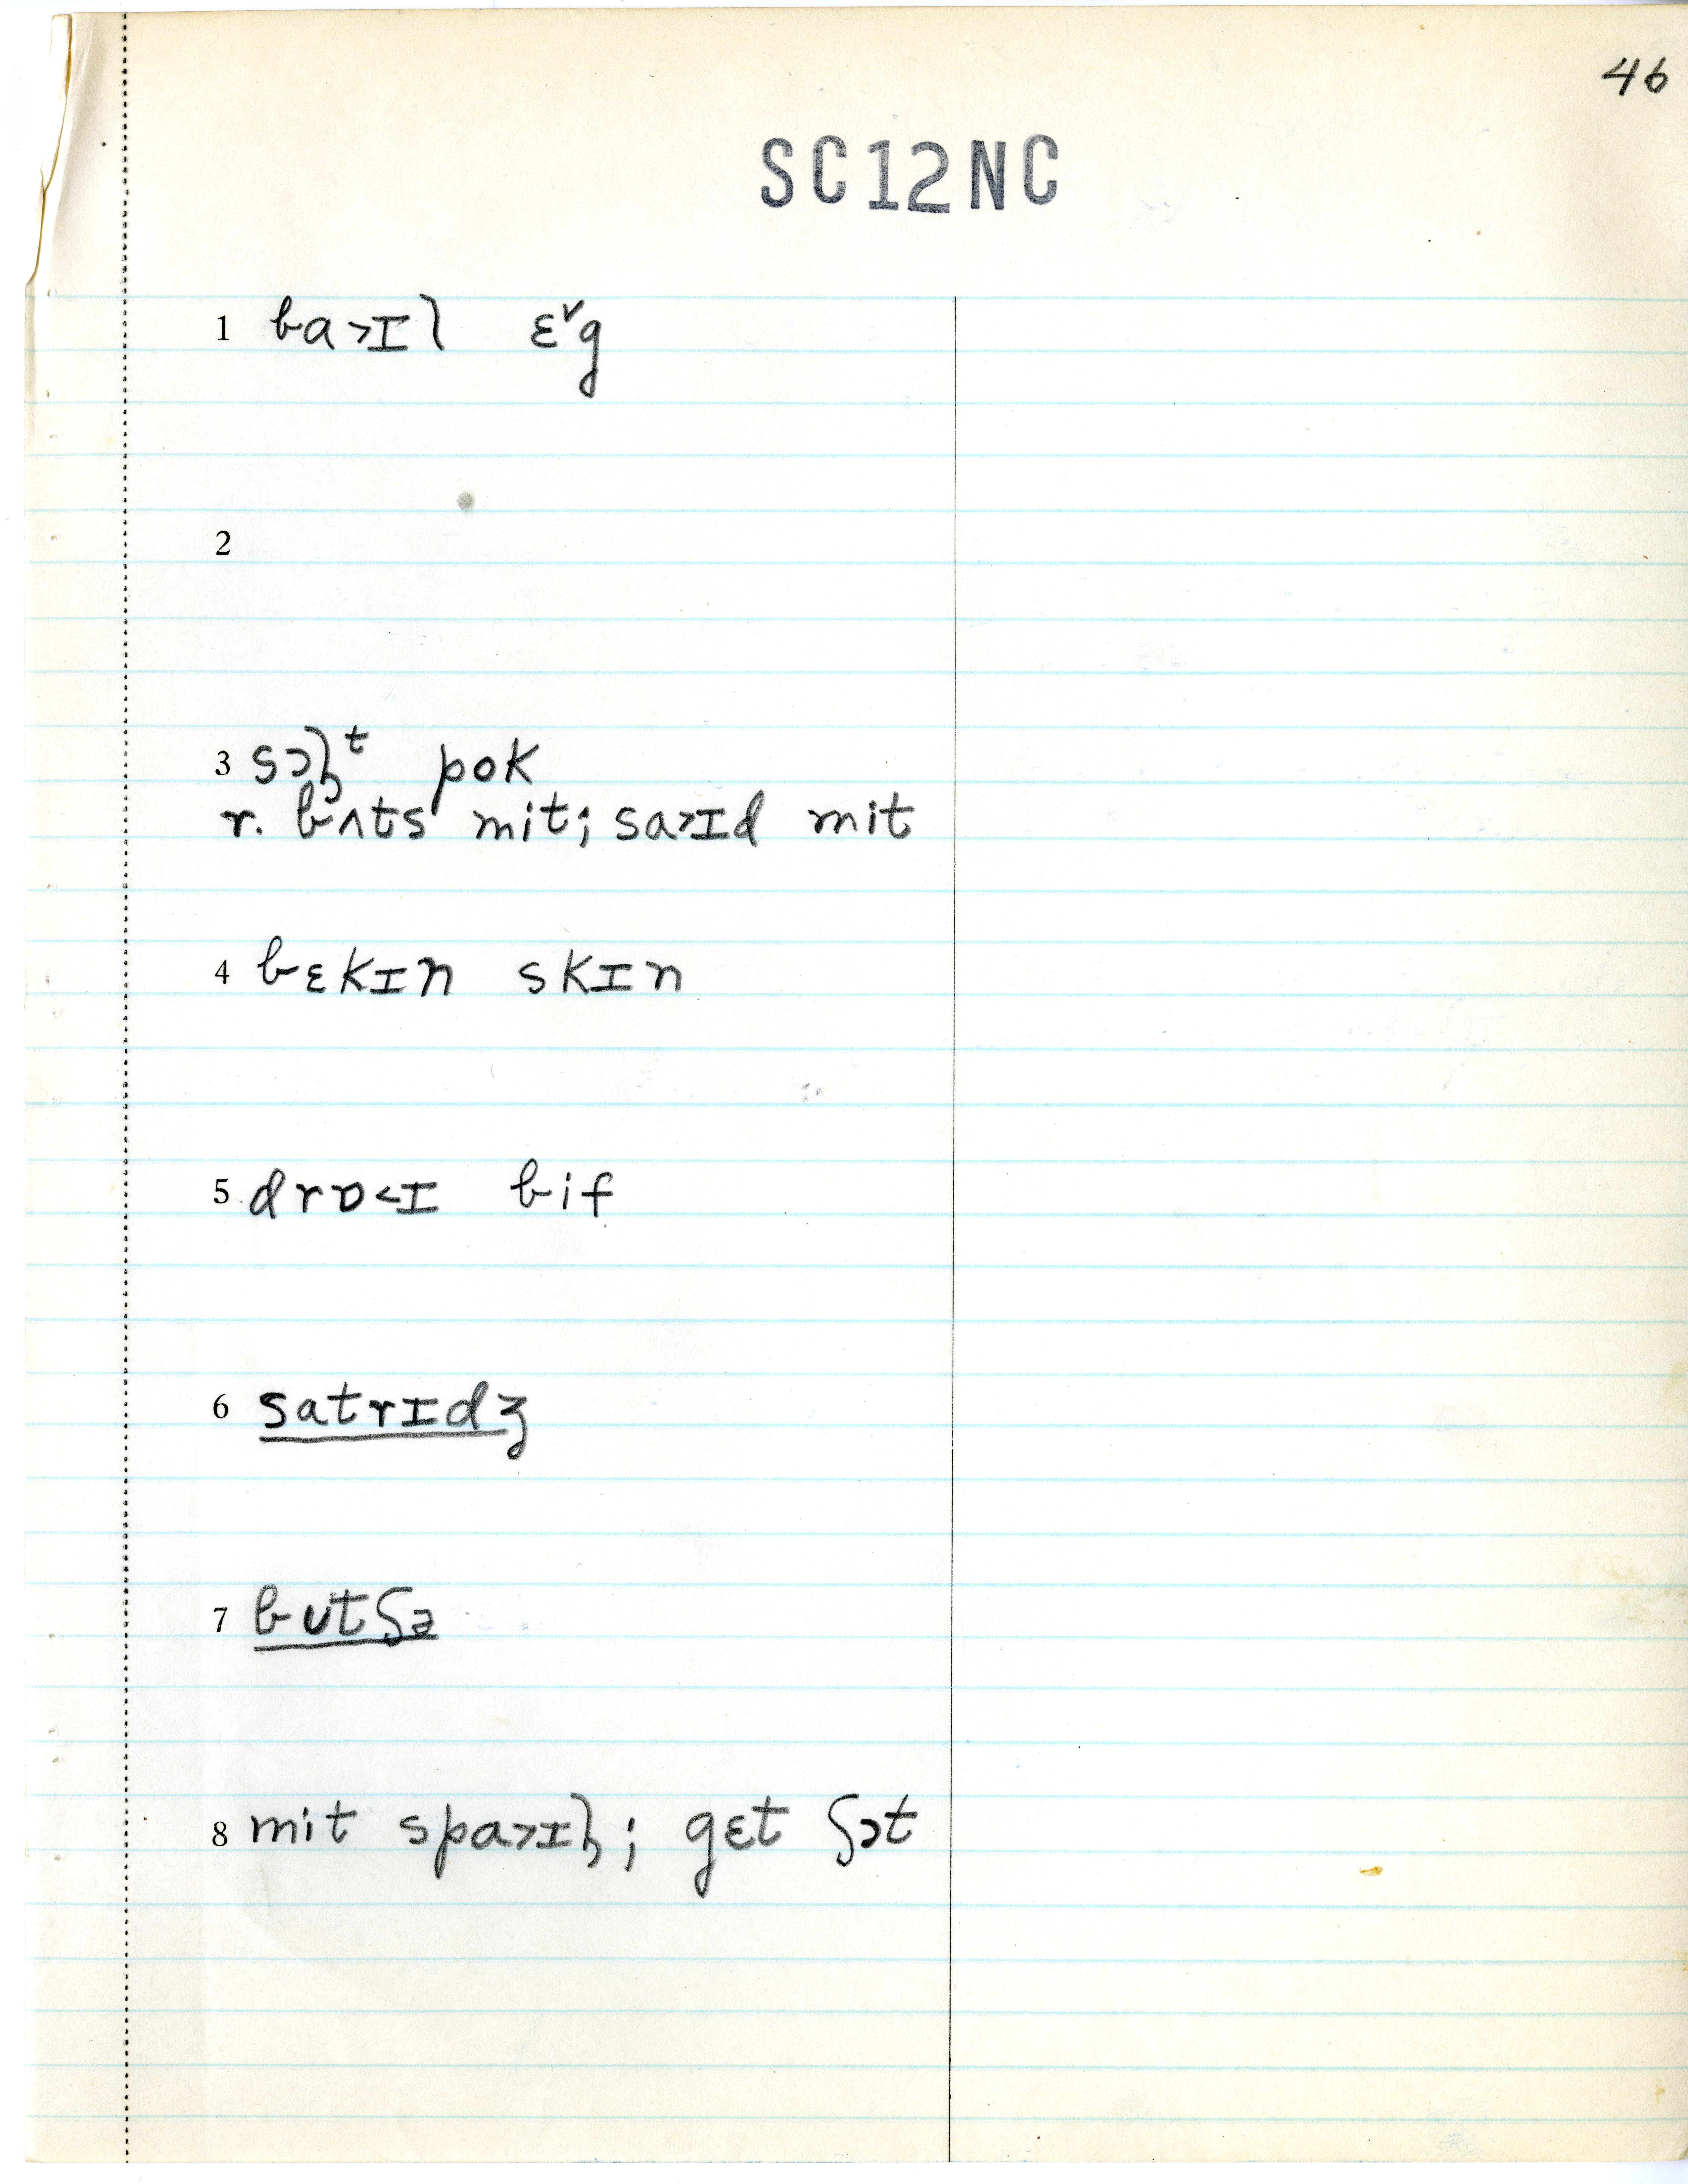 46
SC12NC
1 ba>ɪl ɛ˅g
2
3 sɔɫᵗ pok
r. bʌts mit; sa>ɪd mit
4 bɛkɪn skɪn
5 drɒ<ɪ bif
6 satrɪdʒ
7 butʃə
8 mit spa>ɪɫ; gɛt ʃɔt